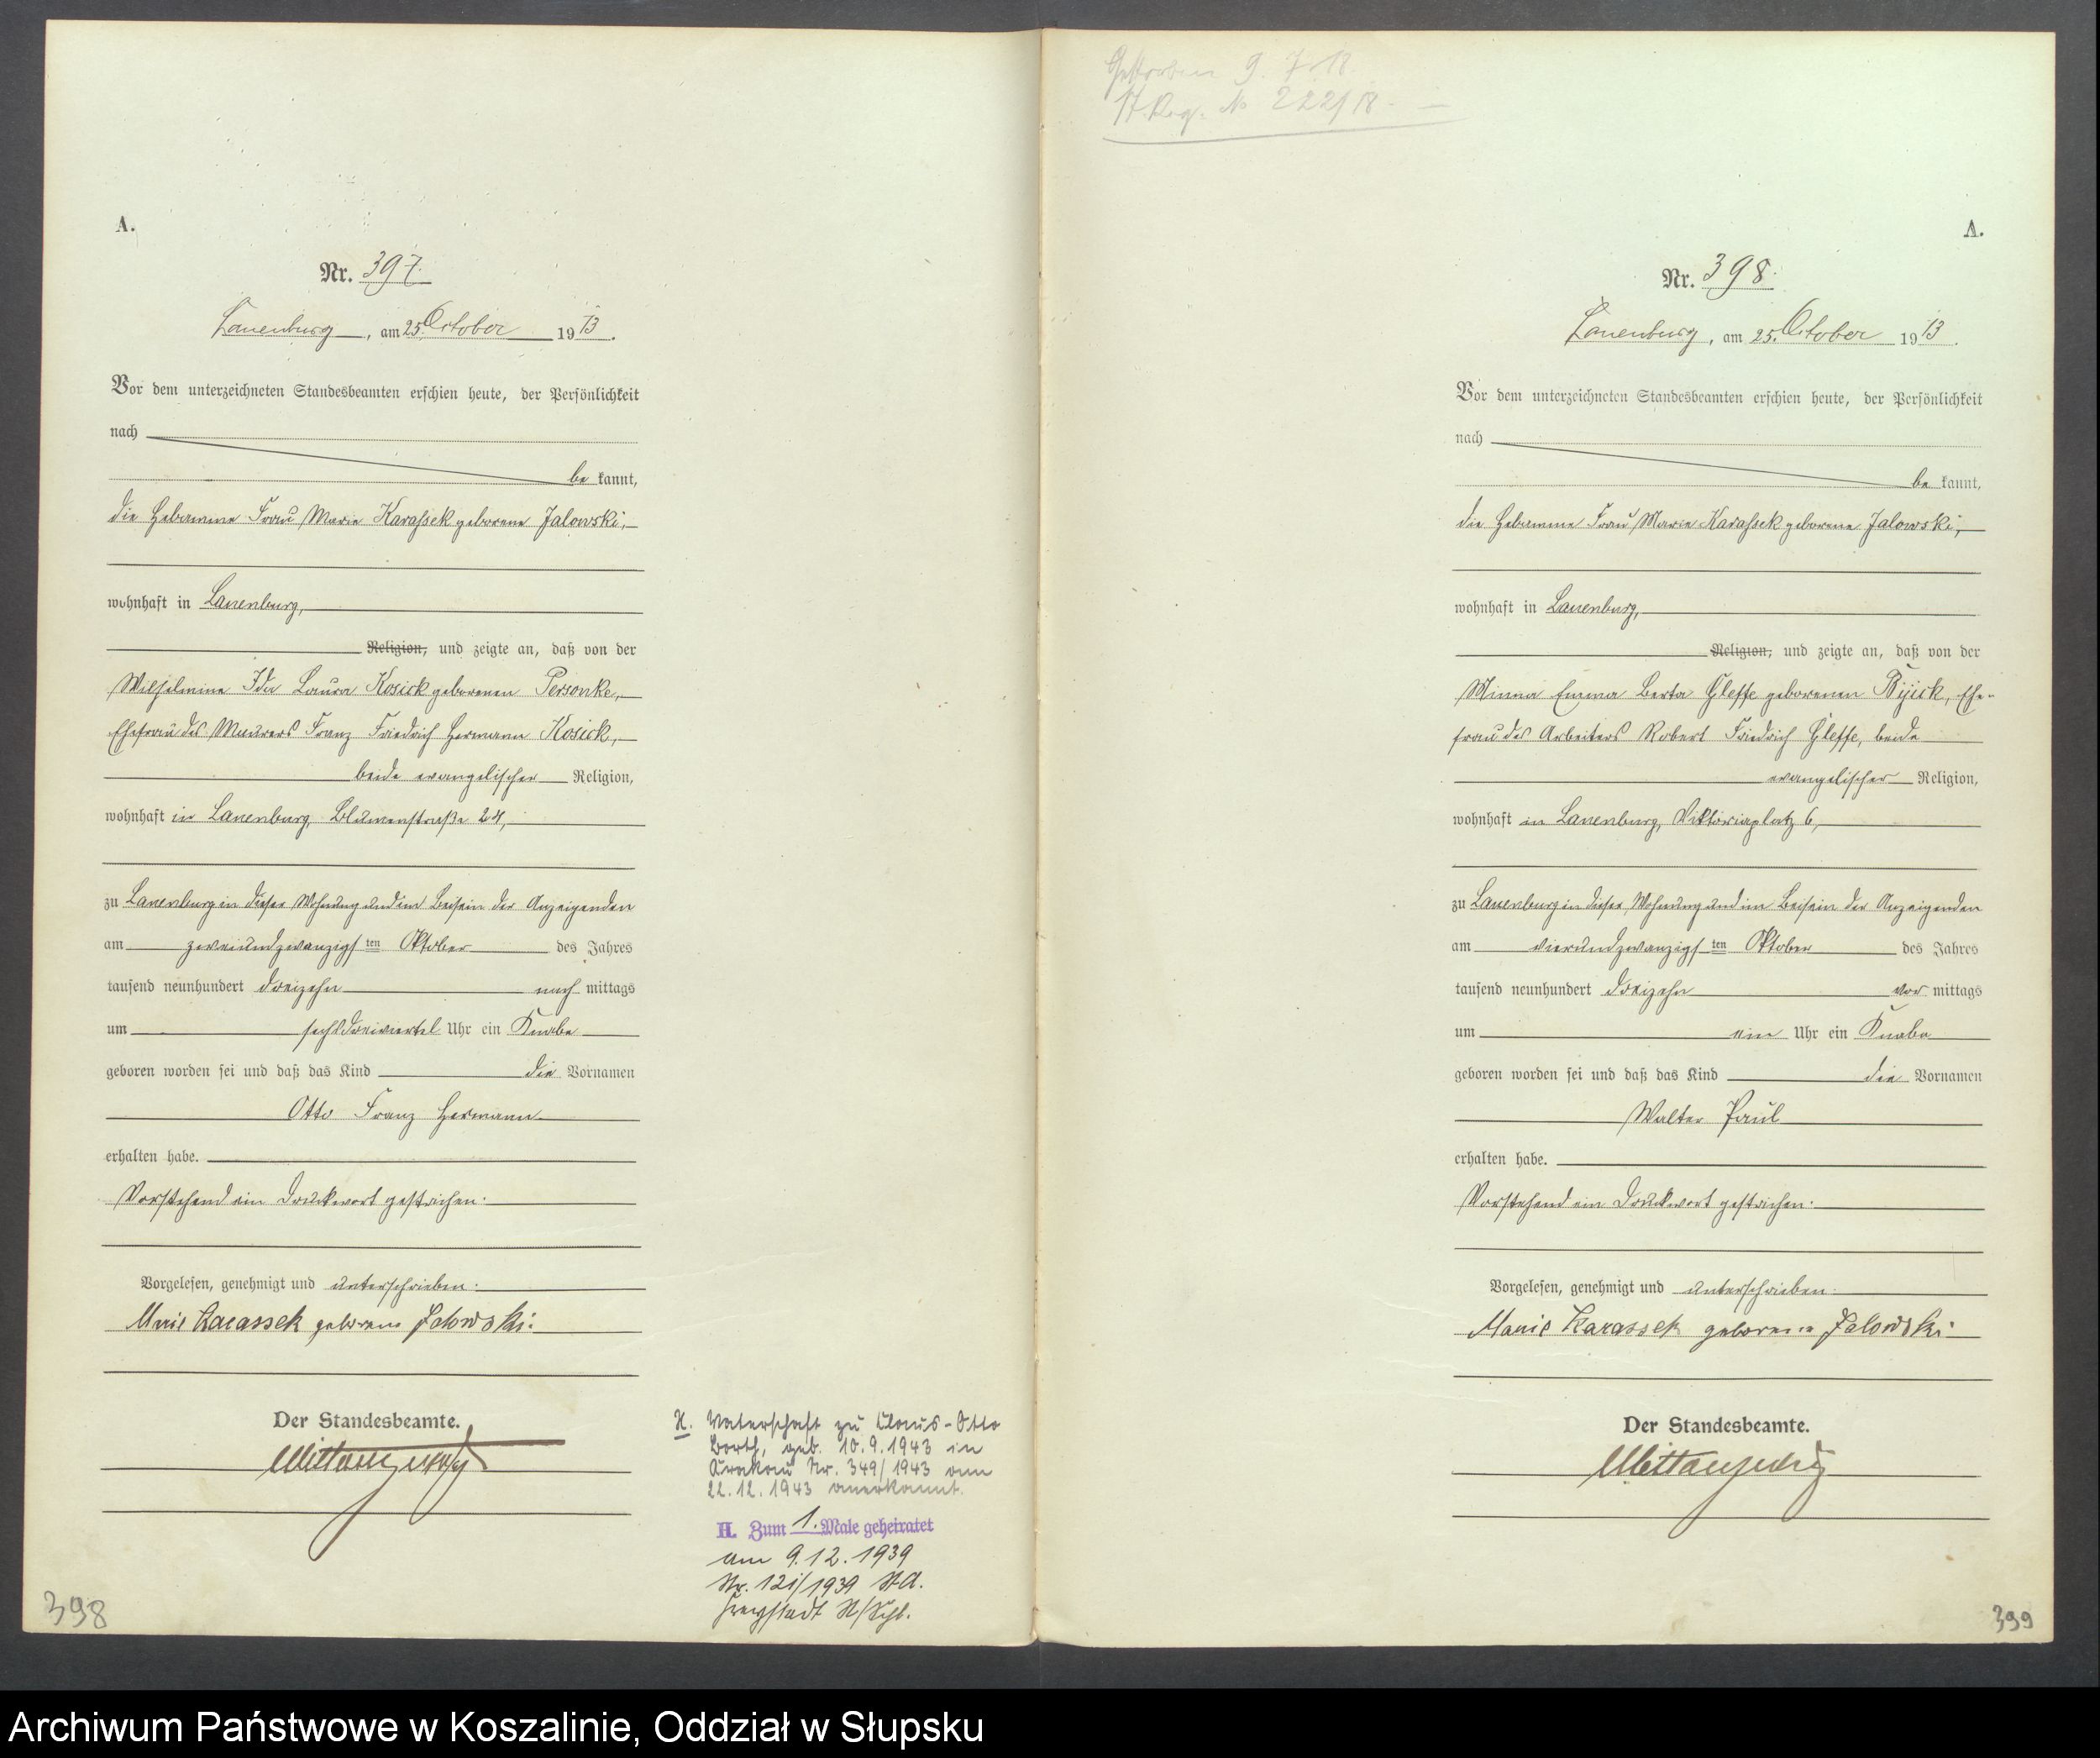 A.
Nr. 397.
Lauenburg, am 25. October 1913.
Vor dem unterzeichneten Standesbeamten erschien heute, der Persönlichkeit
nach
be kannt,
die Hebamme Frau Marie Karassek geborene Jalowski,
wohnhaft in Lauenburg,
Religion, und zeigte an, daß von der
Wilhelmine Ida Laura Kosick geborenen Personke,
Ehefrau des Maurers Franz Friedrich Hermann Kosick,
beide evangelischer Religion,
wohnhaft in Lauenburg, Blumenstraße 24,
zu Lauenburg in dieser Wohnung und im Beisein der Anzeigenden
am zweiundzwanzigsten Oktober des Jahres
tausend neunhundert dreizehn nach mittags
um sechsdreiviertel Uhr ein Knabe
geboren worden sei und daß das Kind die Vornamen
Otto Franz Hermann
erhalten habe.
Vorstehend ein Druckwort gestrichen.
Vorgelesen, genehmigt und unterschrieben.
Marie Karassek geborene Jalowski.
Der Standesbeamte.
Vaterschaft zu Claus-Otto
geb. 10.9.1943 in
Krakau Nr. 349/1943 am
22.12.1943 anerkannt.
H. Zum 1. Male geheiratet
am 9.12.1939
Nr. 121/1939 St.A.
Freystadt N/Schl.
398
Gestorben 9. 7. 18.
St. Reg. No 222/18.
A.
Nr. 398.
Lauenburg, am 25. October 1913.
Vor dem unterzeichneten Standesbeamten erschien heute, der Persönlichkeit
nach
be kannt,
die Hebamme Frau Marie Karassek geborene Jalowski,
wohnhaft in Lauenburg,
Religion, und zeigte an, daß von der
Minna Emma Berta Gleffe geborenen Ehe-
frau des Arbeiters Robert Friedrich Gleffe, beide
evangelischer Religion,
wohnhaft in Lauenburg, Viktoriaplatz 6,
zu Lauenburg in dieser Wohnung und im Beisein der Anzeigenden
am vierundzwanzigsten Oktober des Jahres
tausend neunhundert dreizehn vor mittags
um ein Uhr ein Knabe
geboren worden sei und daß das Kind die Vornamen
Walter Paul
erhalten habe.
Vorstehend ein Druckwort gestrichen.
Vorgelesen, genehmigt und unterschrieben.
Marie Karassek geborene Jalowski
Der Standesbeamte.
399
Archiwum Państwowe w Koszalinie, Oddział w Słupsku